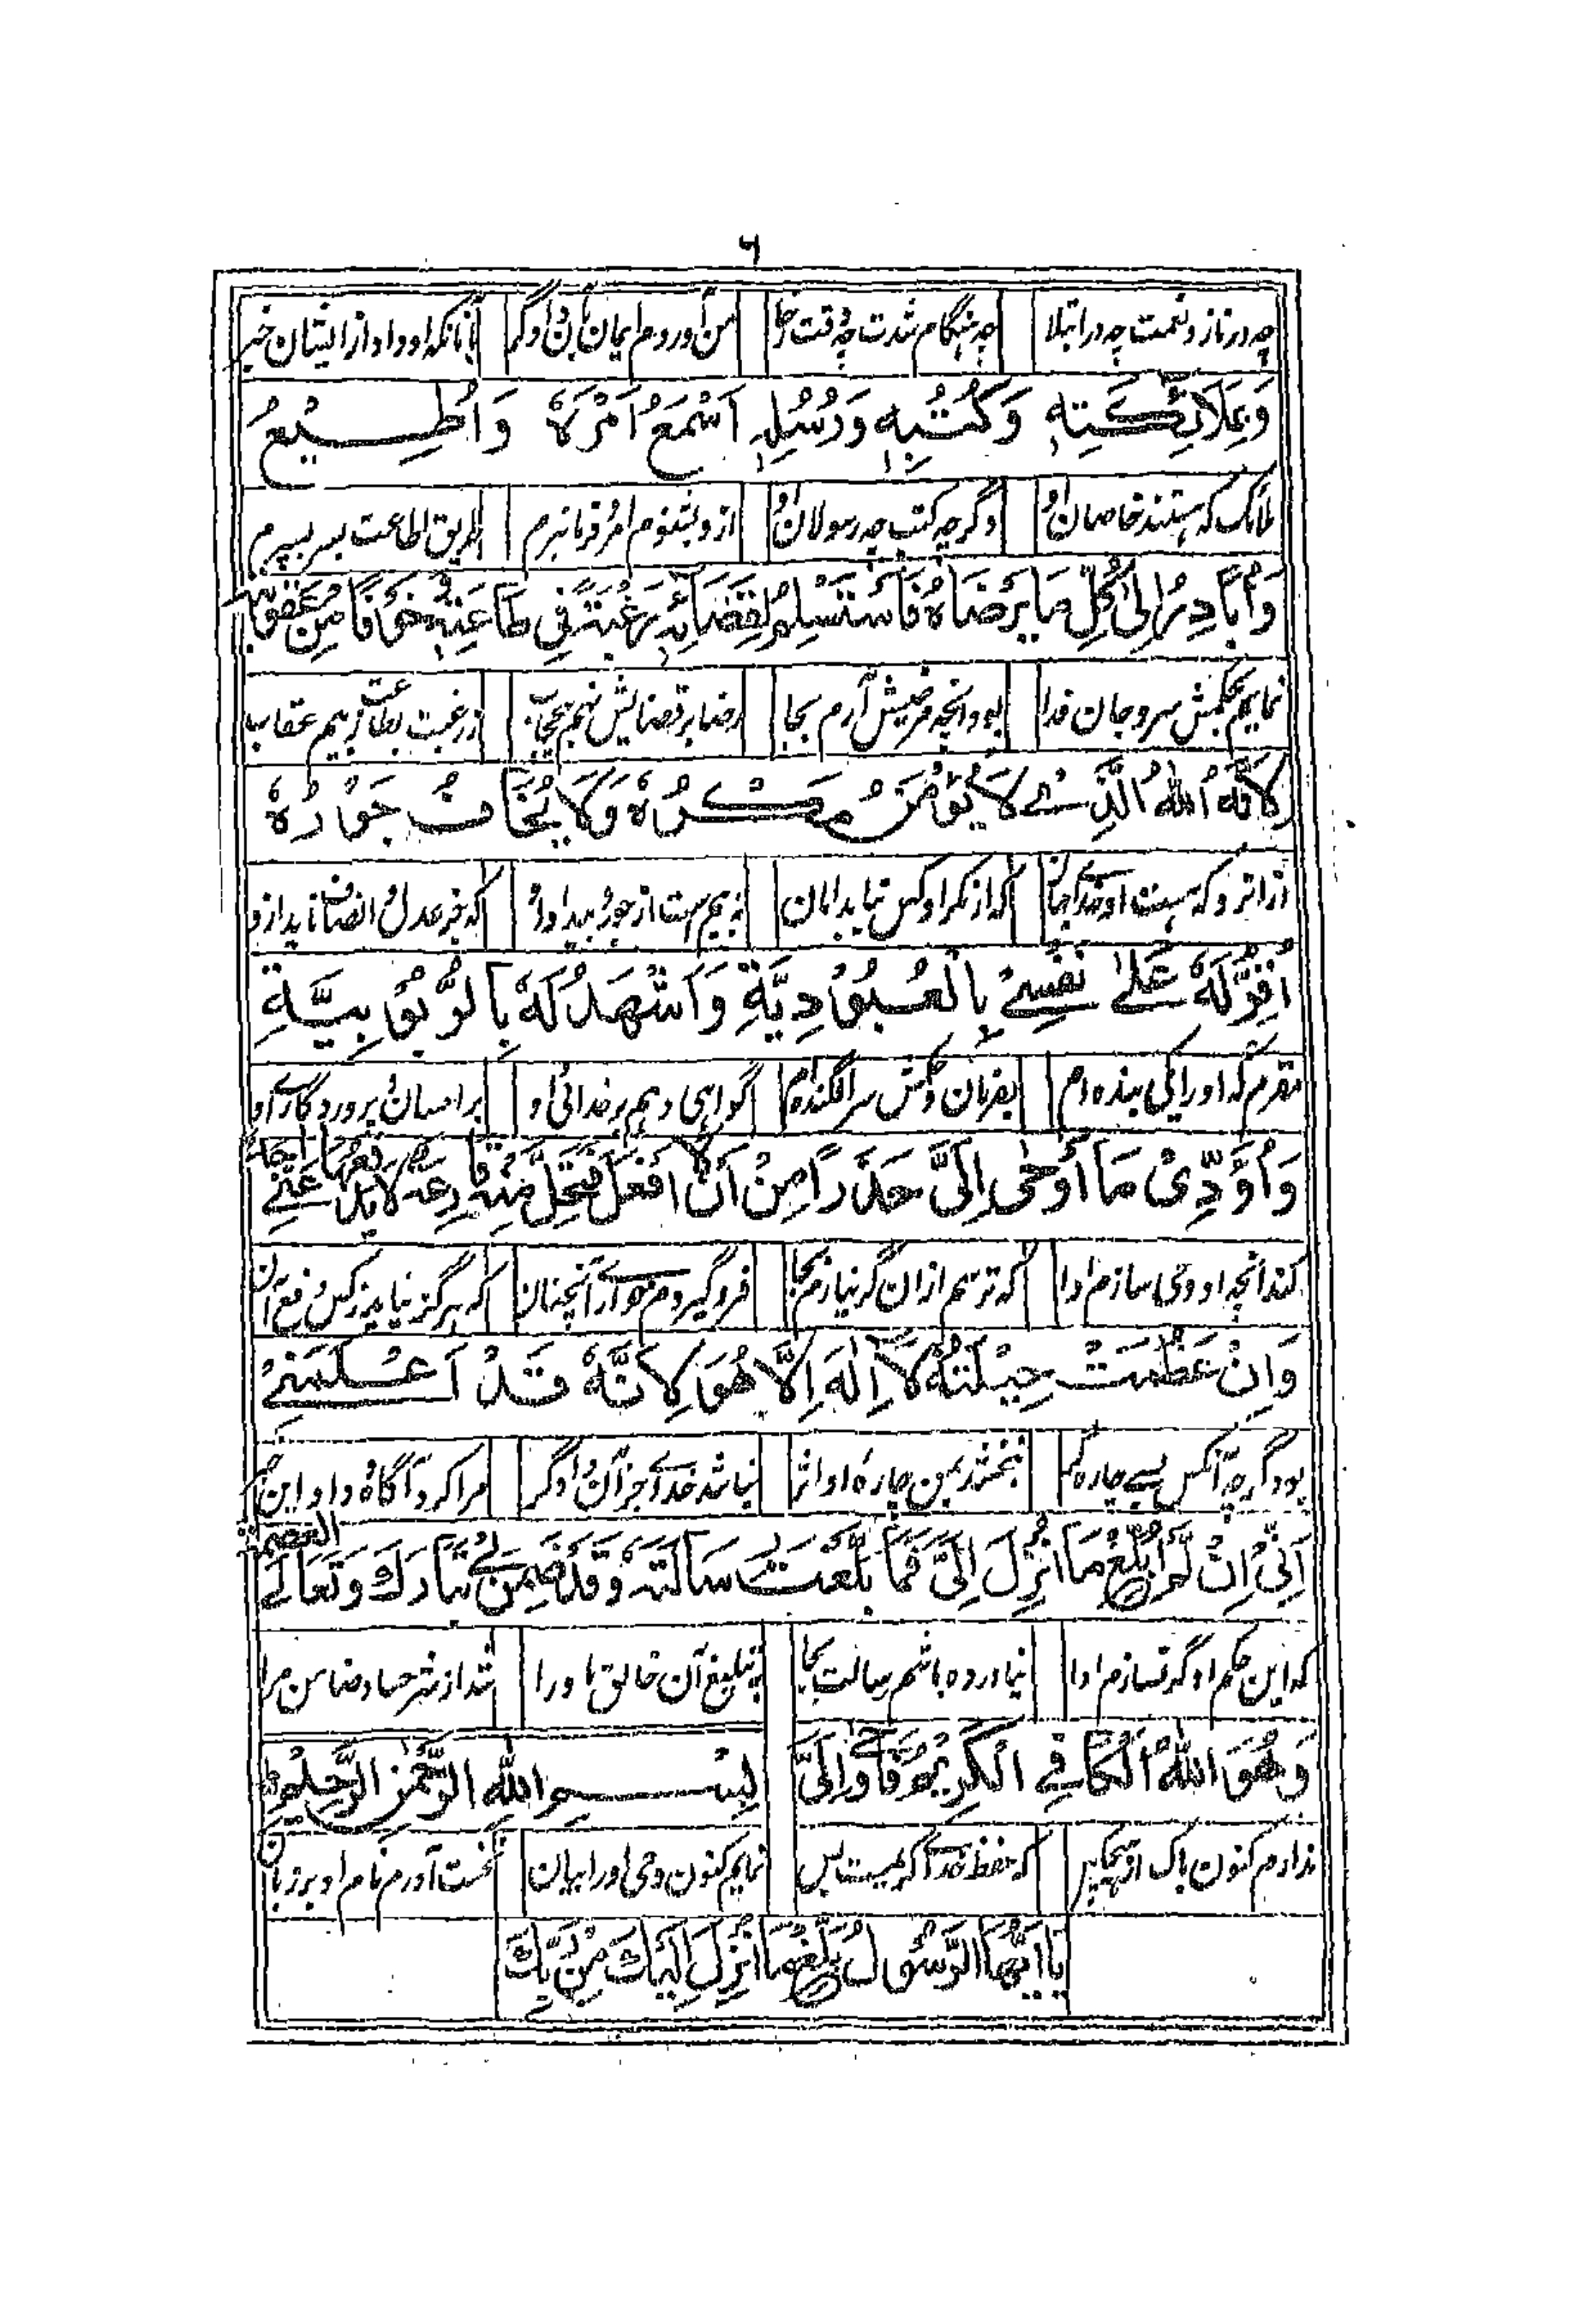 ۶
چه در ناز و نعمت چه در ابتلا چه هنگام شدت چه وقت رخا من آوردم ایمان بآن دادگر بآنانکه او داد از ایشان خبر
وَبِمَلَائِكَتِهِ وَكُتُبِهِ وَرُسُلِهِ اَسْمَعُ اَمْرَهٗ وَاُطِيْعُ
ملائک که هستند خاصان او دگر چه کتب چه رسولان او ازو بشنوم امر و فرمانبرم طریق اطاعت بسر بسپرم
وَاُبَادِرُ اِلٰى كُلِّ مَا يَرْضَاهُ فَاَسْتَسْلِمُ لِقَضَائِهِ رَغْبَةً فِي طَاعَتِهِ وَخَوْفًا مِنْ عُقُوبَتِهِ
نمایم بحکمش سر و جان فدا بود آنچه مرضیش آرم بجا رضا بر قضایش نهم بیحجاب ز رغبت بطاعت ز بیم عقاب
لِاَنَّهُ اللّٰهُ الَّذِيْ لَا يُؤْمَنُ مَكْرُهٗ وَلَا يُخَافُ جَوْرُهٗ
ازانرو که هست او خدای جهان که از مکر او کس نیابد امان نه بیم ست از جور و بیداد او که غیر عدل و انصاف ناید ازو
اُقِرُّ لَهٗ عَلٰى نَفْسِيْ بِالْعُبُوْدِيَّةِ وَاَشْهَدُ لَهٗ بِالرُّبُوْبِيَّةِ
مقرم که او را یکی بنده ام بفرمان و حکمش سرافکنده ام گواهی دهم بر خدائی او بر احسان و پروردگاری او
وَاُؤَدِّيْ مَا اَوْحٰى اِلَيَّ حَذَرًا مِنْ اَنْ لَا اَفْعَلَ فَتَحِلَّ مِنْهُ قَارِعَةٌ لَا يَدْفَعُهَا عَنِّيْ اَحَدٌ
کند آنچه او وحی سازم ادا که ترسم ازان گر نیارم بجا فروگیردم خواری آنچنان که هرگز نیاید ز کس دفع آن
وَاِنْ عَظُمَتْ حِيْلَتُهٗ لَا اِلٰهَ اِلَّا هُوَ لِاَنَّهٗ قَدْ اَعْلَمَنِيْ
بود گرچه آنکس بسی چاره گر نبخشد بمن چاره او اثر نباشد خدای جز آن دادگر مرا کرد آگاه و داد این خبر
اَنِّيْ اِنْ لَمْ اُبَلِّغْ مَا اُنْزِلَ اِلَيَّ فَمَا بَلَّغْتُ رِسَالَتَهٗ وَقَدْ ضَمِنَ لِيْ تَبَارَكَ وَتَعَالٰى الْعِصْمَةَ
که این حکم او گر نسازم ادا نیاورده باشم رسالت بجا بتبلیغ آن خالق ماورا شد از شر حساد ضامن مرا
وَهُوَ اللّٰهُ الْكَافِي الْكَرِيْمُ فَاَوْحٰى اِلَيَّ بِسْمِ اللّٰهِ الرَّحْمٰنِ الرَّحِيْمِ
ندارم کنون باک از هیچکس که حفظ خدای کریمست بس نمایم کنون وحی او را بیان نخست آورم نام او بر زبان
يَا اَيُّهَا الرَّسُوْلُ بَلِّغْ مَا اُنْزِلَ اِلَيْكَ مِنْ رَبِّكَ